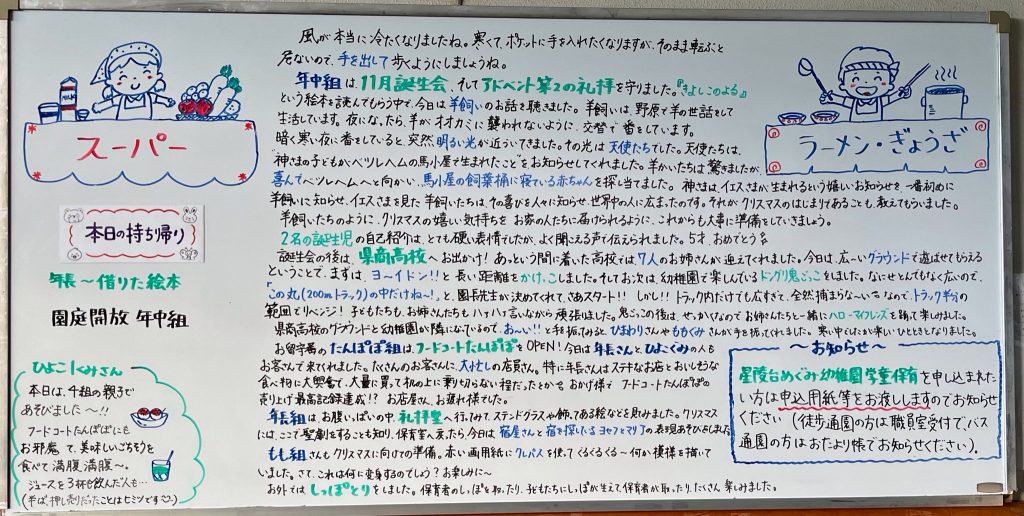 風が本当に冷たくなりましたね。寒くて、ポケットに手を入れたくなりますが、そのまま転ぶと
危ないので、手を出して歩くようにしましょうね。
年中組は11月誕生会、そしてアドベント第2の礼拝を守りました。『きよしこのよる』
という絵本を読んでもらう中で、今日は羊飼いのお話を聴きました。羊飼いは、野原で羊の世話をして
生活しています。夜になったら、羊がオオカミに襲われないように、交替で番をしています。
暗く寒い夜に番をしていると、突然、明るい光が近づいてきました。その光は天使たちでした。天使たちは、
"神さまの子どもが、ベツレヘムの馬小屋で生まれたこと"をお知らせしてくれました。羊かいたちは驚きましたが、
喜んでベツレヘムへと向かい、馬小屋の飼葉桶に寝ている赤ちゃんを探し当てました。神さまは、イエスさまが生まれるという嬉しいお知らせを一番初めに
羊飼いに知らせ、イエスさまを見た羊飼いたちは、その喜びを人々に知らせ、世界中の人に広まったのです。それがクリスマスのはじまりであることも、教えてもらいました。
羊飼いたちのように、クリスマスの嬉しい気持ちをお家の人たちに届けられるように、これからも大事に準備をしていきましょう。
2名の誕生児の自己紹介は、とても硬い表情でしたが、よく聞こえる声で伝えられました。5才、おめでとう
誕生会の後は、県商高校へお出かけ!あっという間に着いた高校では、7人のお姉さんが迎えてくれました。今日は、広〜いグラウンドで遊ばせてもらえる
ということで、まずは、ヨ〜イドン!!と長い距離をかけっこしました。そしてお次は、幼稚園で楽しんでいるドングリ鬼ごっこをしました。なにせとんでもなく広いので、
「この丸(200mトラック)の中だけね〜!」と、園長先生が決めてくれて、さあスタート!!しかし!!トラック内だけでも広すぎて、全然捕まらな〜いなので、トラック半分の
範囲でリベンジ!子どもたちも、お姉さんたちもハァハァ言いながら頑張りました。鬼ごっこの後は、せっかくなのでお姉さんたちと一緒にハロー・マイフレンズを踊って楽しみました。
県商高校のグラウンドと幼稚園が隣になっているので、お〜い!!と手を振ってみると、ひまわりさんやももぐみさんが手を振ってくれました。寒い中でしたが楽しいひとときとなりました。
お留守番のたんぽぽ組は、フードコートたんぽぽをOPEN!今日は年長さんと、ひよこぐみの人も
お客さんで来てくれました。たくさんのお客さんに、大忙しの店員さん。特に年長さんはステキなお店とおいしそうな
食べ物に大興奮で、大量に買って机の上に乗り切らない程だったとか。おかげ様でフードコートたんぽぽの
売り上げ最高記録達成!?お店屋さん、お疲れ様でした。
年長組は、お腹いっぱいの中、礼拝堂へ行ってみて、ステンドグラスや飾ってある絵などを見ました。クリスマス
には、ここで聖劇をすることも知り、保育室へ戻ったら、今日は宿屋さんと宿を探しているヨセフとマリアの表現あそびをしました。
もも組さんもクリスマスに向けての準備。赤い画用紙にクレパスを使ってくるくるくる〜何か模様を描いて
いました。さて、これは何に変身するのでしょう?お楽しみに〜
お外では、しっぽとりをしました。保育者のしっぽを取ったり、子どもたちにしっぽが生えて、保育者が取ったり、たくさん楽しみました。
MILK
スーパー
本日の持ち帰り
年長〜借りた絵本
園庭開放 年中組
ひよこぐみさん
本日は、4組の親子で
あそびました〜!!
フードコートたんぽぽにも
お邪魔して、美味しいごちそうを
食べて満腹、満腹〜。
ジュースを3杯も飲んだ人も…
(半ば、押し売りだったことはヒミツです)
ラーメン・ぎょうざ
〜お知らせ〜
星陵台めぐみ幼稚園学童保育を申し込まれた
い方は申込用紙等をお渡ししますのでお知らせ
ください(徒歩通園の方は職員室受付で、バス
通園の方はおたより帳でお知らせください)。